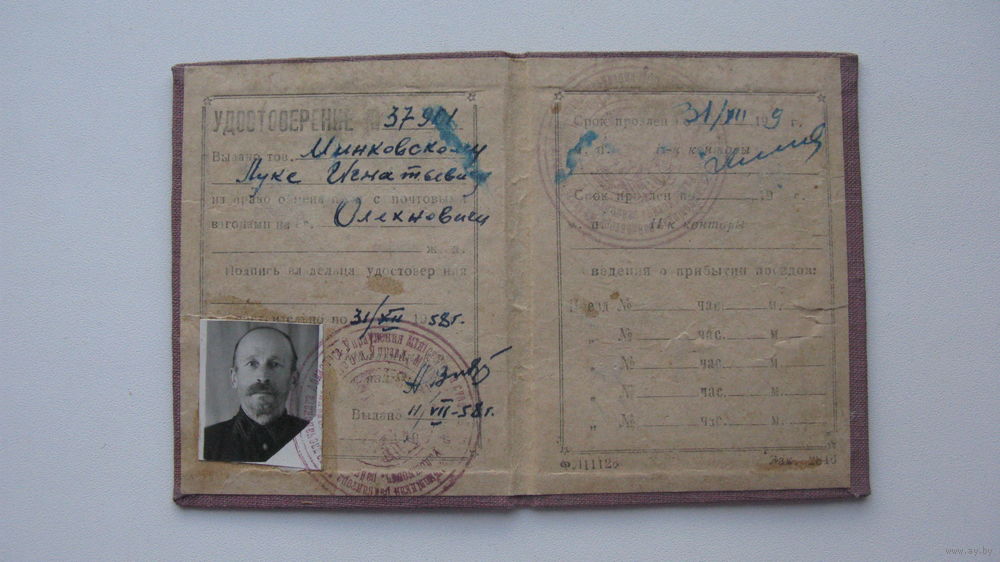 УДОСТОВЕРЕНИЕ № 37901
Выдано тов. Минковскому
Луке Игнатьевичу
на право обмена почты с почтовыми
вагонами на ст. Олехновичи
ж. д.
Подпись владельца удостоверения
Действительно по 31/XII 1958 г.
Выдано 11/VII-58 г.
Срок продлен по 31/XII 1959 г.
Н-к конторы
Срок продлен по 195 г.
Н-к конторы
Сведения о прибытии поездов:
Поезд № час. м.
„ № час. м.
„ № час. м.
„ № час. м.
„ № час. м.
Ф. 11112б
Зак.
www.ay.by